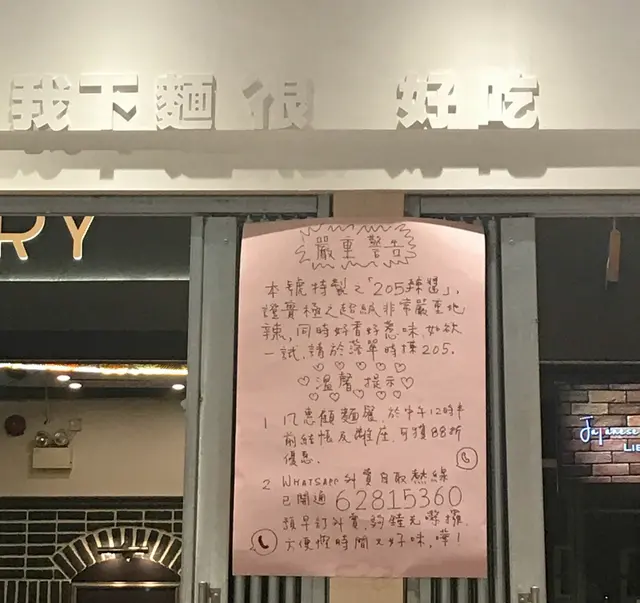 我下麵很 好吃
RY
嚴重警告
本號特製之「205辣醬」,
證實極之超級非常嚴重地
辣,同時好香好惹味,如欲
一試,請於落單時揀205.
溫馨提示
1 凡惠顧麵餐,於中午12時半
前結帳及離座,可獲88折
優惠.
2 WHATSAPP外賣自取熱線
已開通 62815360
預早訂外賣,夠鐘先嚟攞,
方便慳時間又好味,嘩!
Japanese
LIE